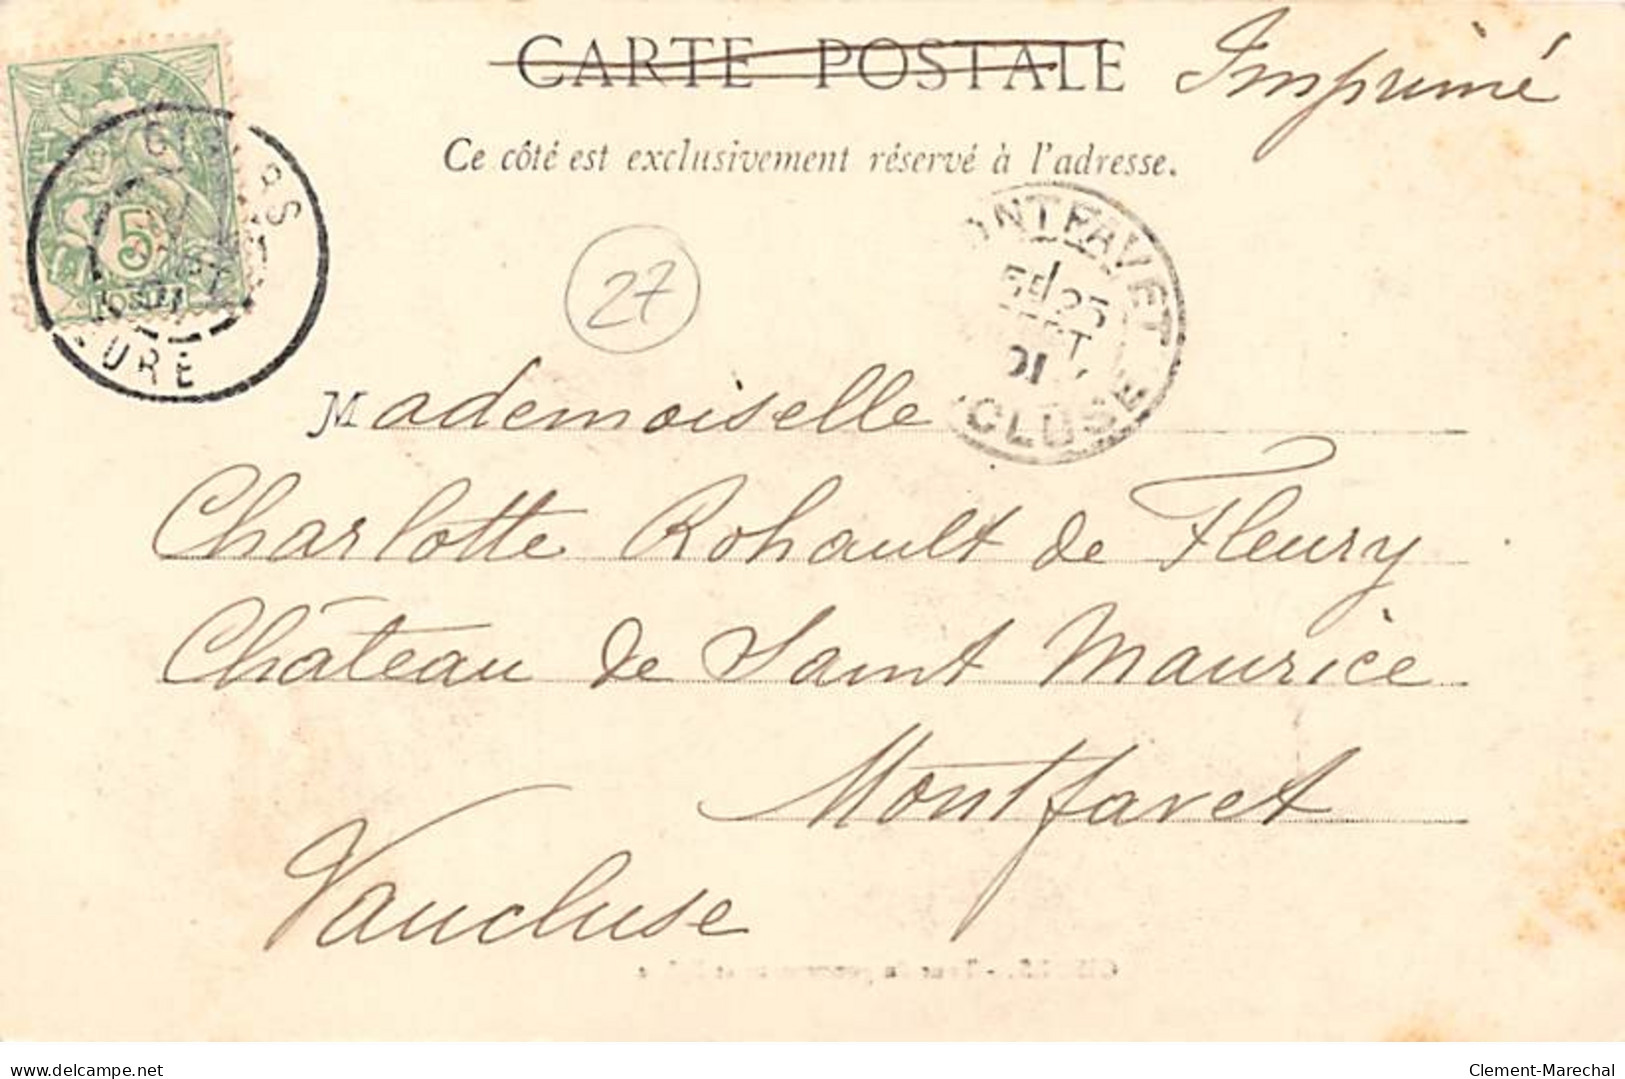 CARTE POSTALE Imprimé
Ce côté est exclusivement réservé à l'adresse.
5
POSTES
EURE
27
ONTFAVET
25
SEPT
01
CLUSE
Mademoiselle
Charlotte Rohault de Fleury
Château de Saint Maurice
Montfavet
Vaucluse
delcampe.net
Clement-Marechal